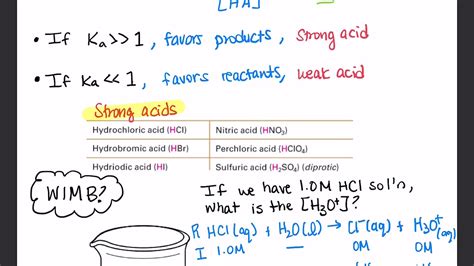 [HA]
• If Ka>>1, favors products, Strong acid
• If Ka<<1, favors reactants, weak acid
Strong acids
Hydrochloric acid (HCl) Nitric acid (HNO₃)
Hydrobromic acid (HBr) Perchloric acid (HClO₄)
Hydriodic acid (HI) Sulfuric acid (H₂SO₄) (diprotic)
WIMB?
If we have 1.0M HCl sol'n,
what is the [H₃O⁺]?
R HCl(aq) + H₂O(l) → Cl⁻(aq) + H₃O⁺(aq)
I 1.0M — 0M 0M